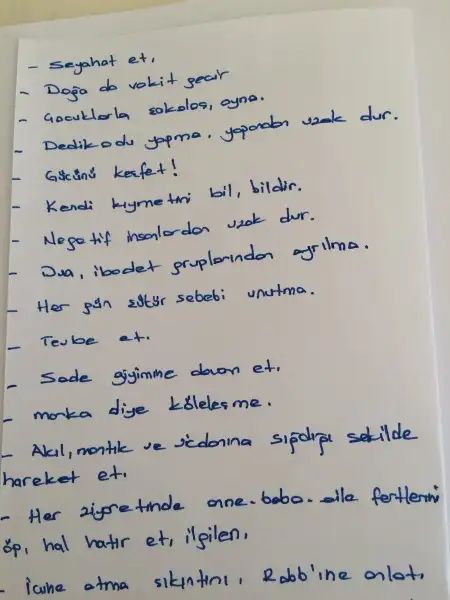 - Seyahat et.
- Doğa da vakit geçir
- Çocuklarla şakalaş, oyna.
- Dedikodu yapma. yapandan uzak dur.
- Gücünü keşfet!
- Kendi kıymetini bil, bildir.
- Negatif insanlardan uzak dur.
- Dua, ibadet gruplarından ayrılma.
- Her gün şükür sebebi unutma.
- Tevbe et.
- Sade giyimine devam et.
- marka diye köleleşme.
- Akıl, mantık ve vicdanına sığdığı şekilde
hareket et.
- Her ziyaretinde anne-baba-aile fertlerini
öp, hal hatır et, ilgilen.
- İçine atma sıkıntını, Rabb'ine anlat.